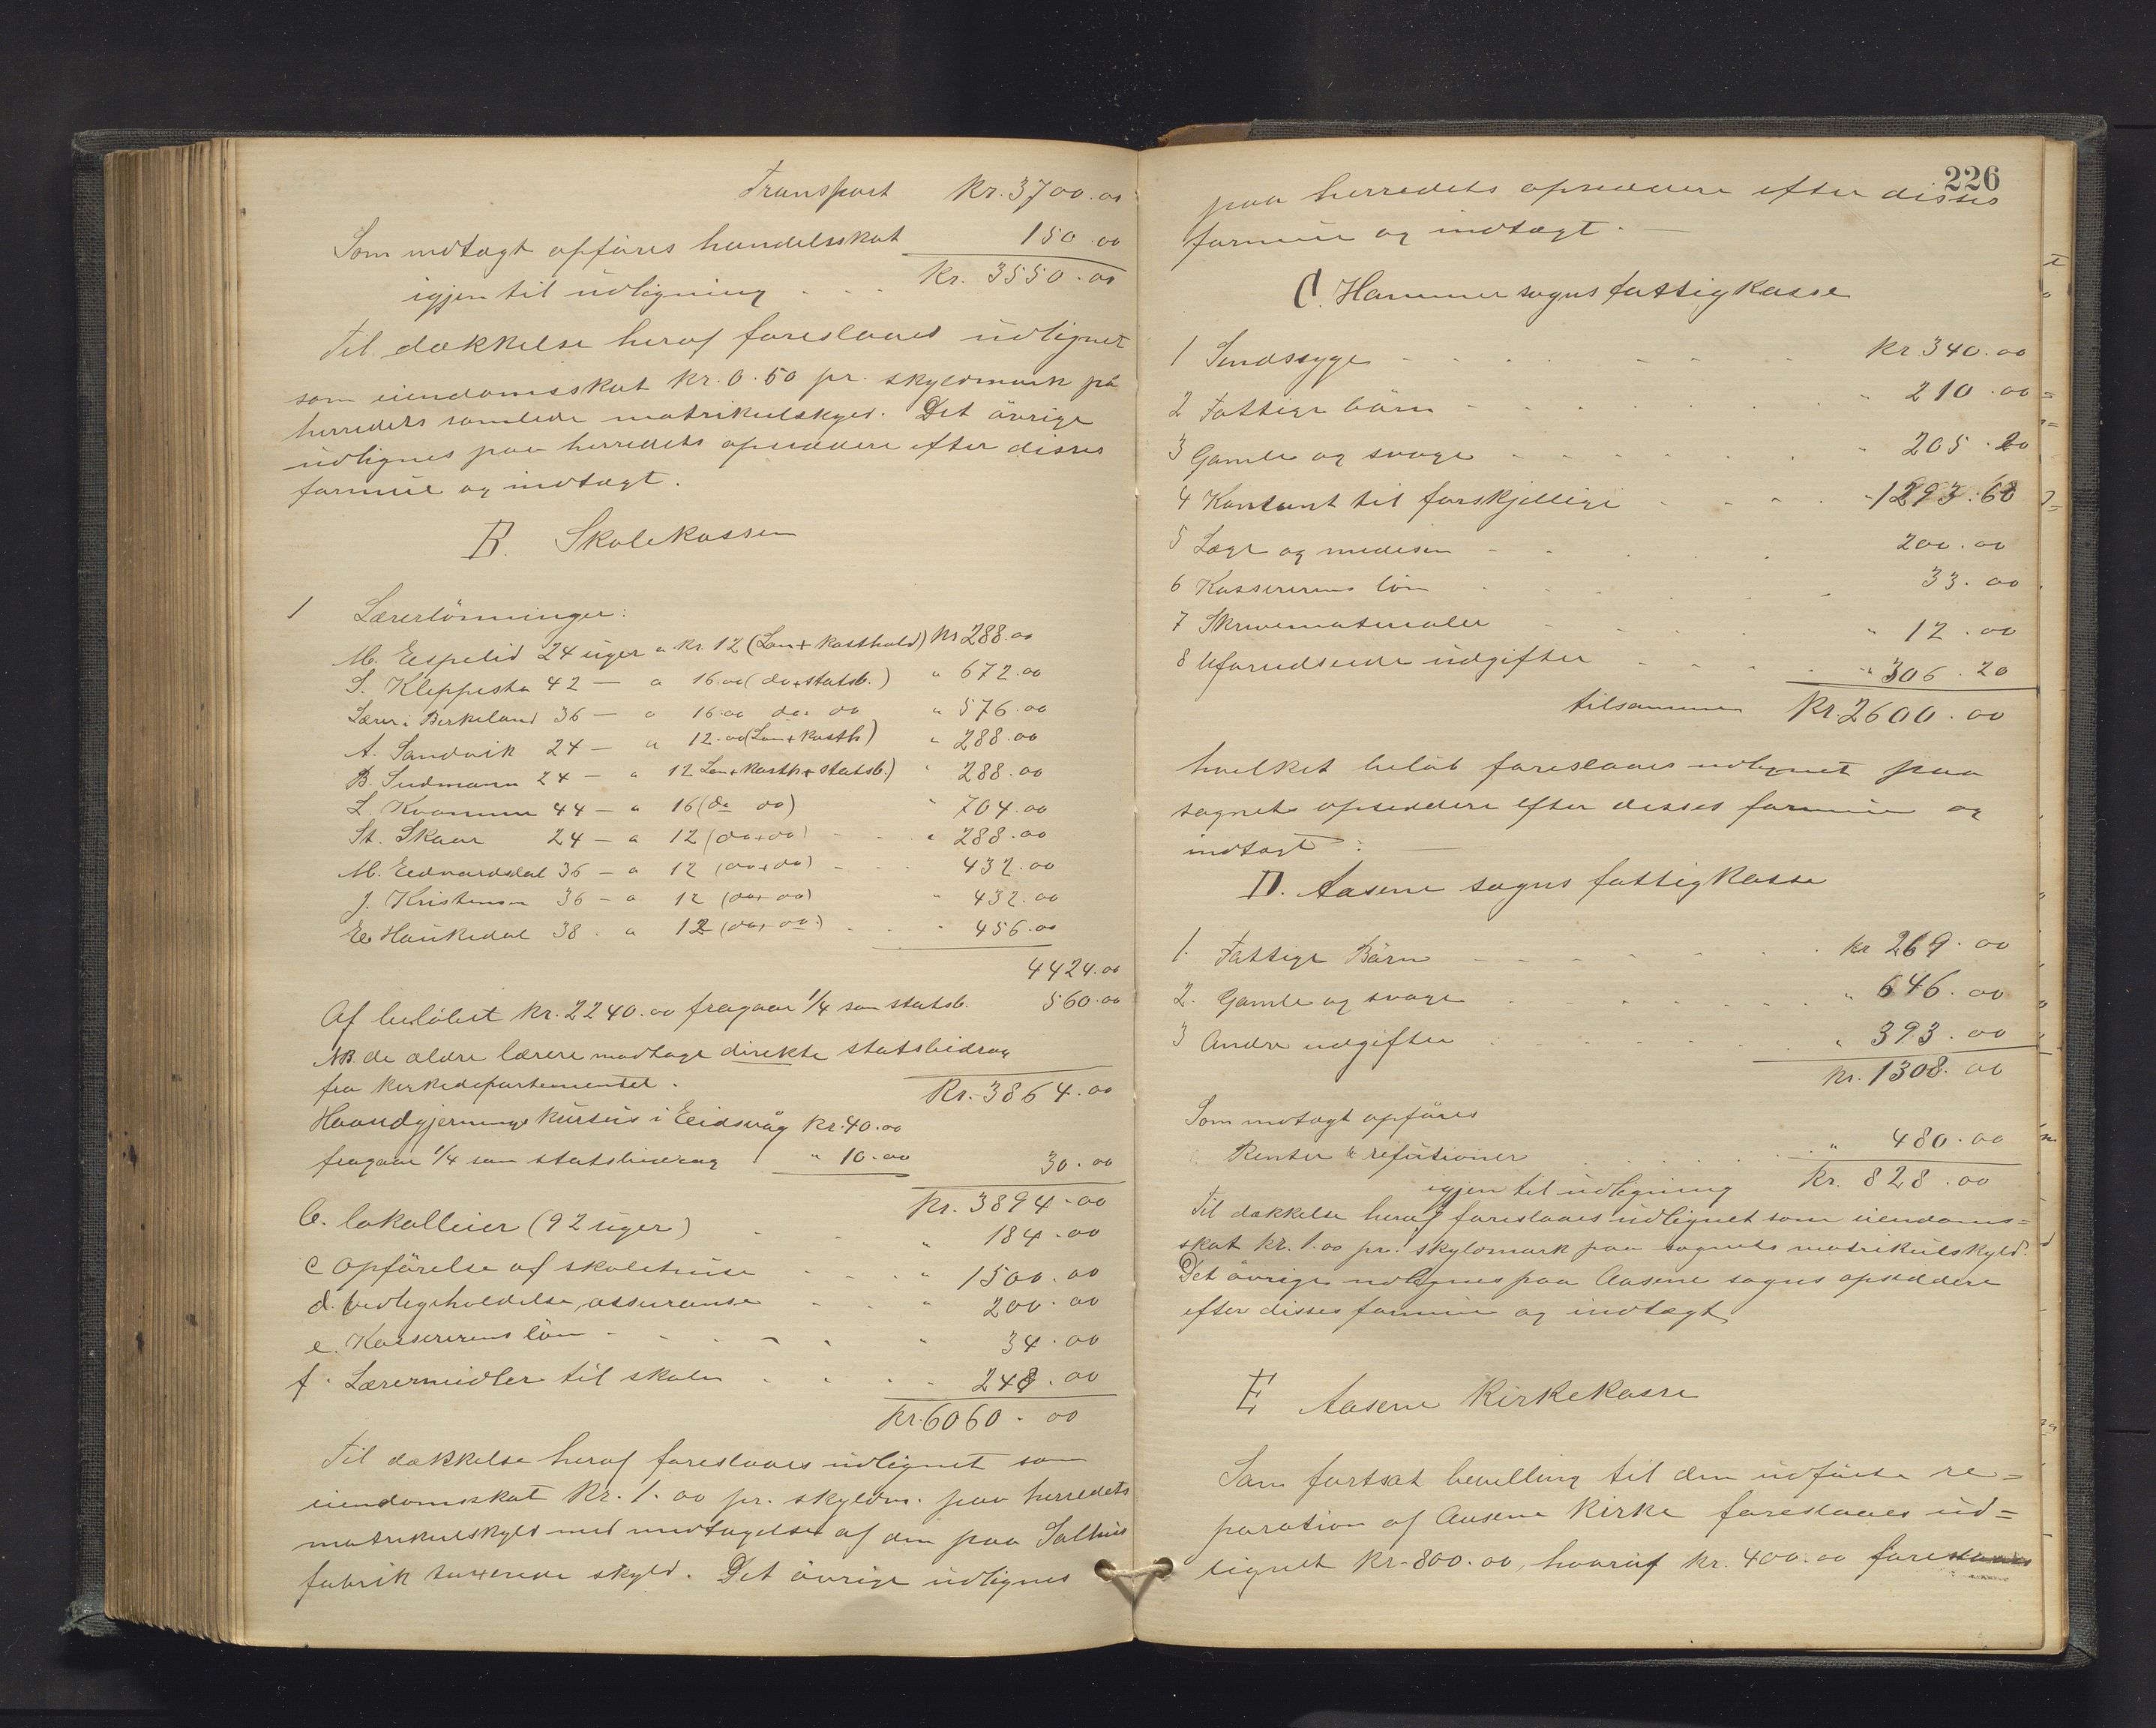 Transport Kr. 3700.00
Som indtægt opføres handelsskat 150.00
igjen til udligning . . . Kr. 3550.00
Til dækkelse heraf foreslaaes udlignet
som eiendomsskat Kr. 0.50 pr. skyldmark på
herredets samlede matrikulskyld. Det øvrige
udlignes paa herredets opsiddere efter disses
formue og indtægt.
B. Skolekassen
1 Lærerlønninger:
M. Espelid 24 uger a kr. 12 (Løn + kosthold) Kr 288.00
S. Kleppestø 42 — a 16.00 (do + statsb.) " 672.00
Lærer i Birkeland 36 — a 16.00 do. do " 576.00
A. Sandvik 24 — a 12.00 (Løn + kosth) " 288.00
B. Sudmann 24 — a 12 Løn + kosth + statsb.) " 288.00
L. Kvamme 44 — a 16 (do do) " 704.00
St. Skaar 24 — a 12 (do + do) " 288.00
M. Edvardsdal 36 — a 12 (do + do) 432.00
J. Kristensen 36 — a 12 (do + do) " 432.00
E. Haukedal 38 . a 12 (do + do.) 456.00
4424.00
Af beløbet kr. 2240.00 fragaar 1/4 som statsb. 560.00
NB. de ældre lærere modtage direkte statsbidrag
fra kirkedepartementet. Kr. 3864.00
Haandgjernings kursus i Eidsvåg Kr. 40.00
fragaar 1/4 som statsbidrag " 10.00 30.00
Kr. 3894.00
b. lokalleier (92 uger) " 184.00
c Opførelse af skolehuse " 1500.00
d. vedligeholdelse, assuranse " 200.00
e. Kassererens løn " 34.00
f. Læremidler til skolen 248.00
Kr. 6060.00
Til dækkelse heraf foreslaaes udlignet som
eiendomsskat Kr. 1.00 pr. skyldm. paa herredets
matrikulskyld med undtagelse af den paa Salhus
fabrik taxerede skyld. Det øvrige udlignes
226
paa herredets opsiddere efter disses
formue og indtægt. —
C. Hammer sogns fattigkasse
1 Sindssyge Kr. 340.00
2 Fattige børn " 210.00
3 Gamle og svage " 205.20
4 Kontant til forskjellige " 1293.60
5 Læge og medisin 200.00
6 Kassererens løn 33.00
7 Skrivematerialer " 12.00
8 Uforudseede udgifter " 306.20
tilsammen Kr. 2600.00
hvilket beløb foreslaaes udlignet paa
sognets opsiddere efter disses formue og
indtægt: —
D. Aasene sogns fattigkasse
1. Fattige Børn kr 269.00
2. Gamle og svage " 646.00
3 Andre udgifter " 393.00
Kr. 1308.00
Som indtægt opføres
Renter & refusioner " 480.00
igjen til udligning Kr. 828.00
Til dækkelse heraf foreslaaes udlignet som eiendoms=
skat kr. 1.00 pr. skyldmark paa sognets matrikulskyld.
Det øvrige udlignes paa Aasene sogns opsiddere
efter disses formue og indtægt
E Aasene Kirkekasse
Som fortsat bevilling til den udførte re=
paration af Aasene Kirke foreslaaes ud=
lignet Kr. 800.00, hvoraf kr. 400.00 foreslaaes